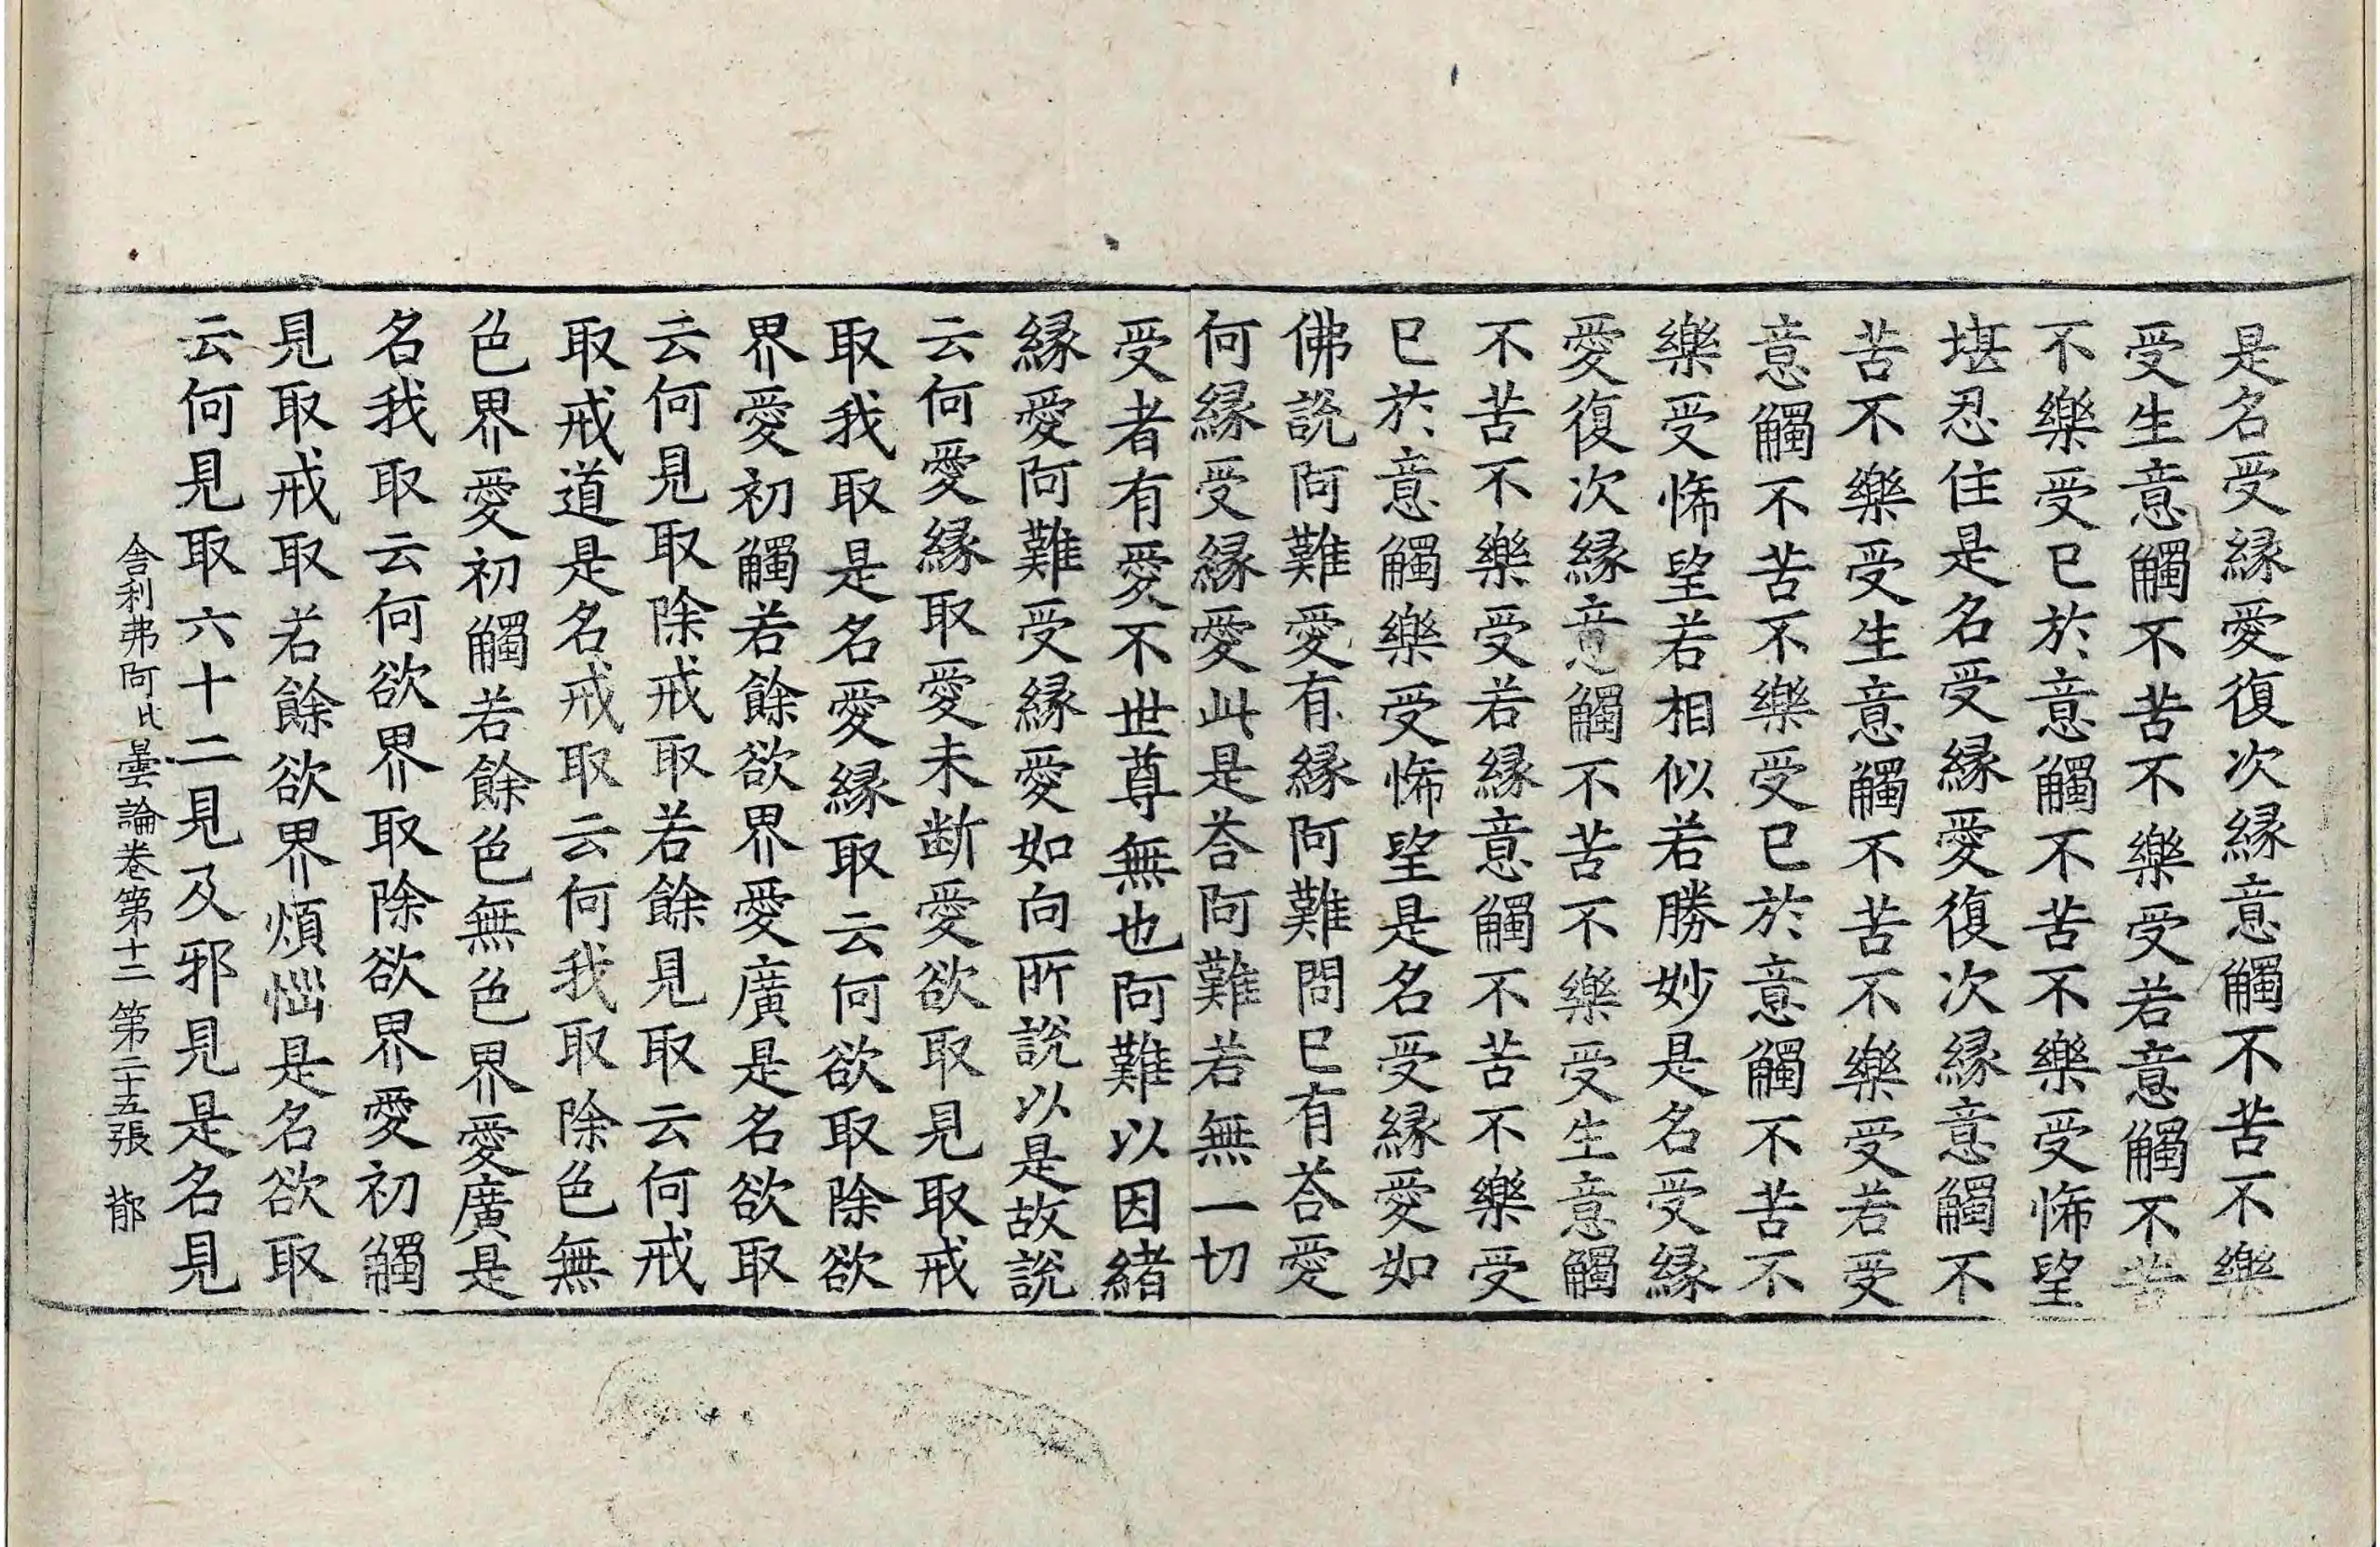 是名受緣愛復次緣意觸不苦不樂
受生意觸不苦不樂受若意觸不苦
不樂受已於意觸不苦不樂受悕望
堪忍住是名受緣愛復次緣意觸不
苦不樂受生意觸不苦不樂受若受
意觸不苦不樂受已於意觸不苦不
樂受悕望若相似若勝妙是名受緣
愛復次緣意觸不苦不樂受生意觸
不苦不樂受若緣意觸不苦不樂受
已於意觸樂受悕望是名受緣愛如
佛說阿難愛有緣阿難問已有荅愛
何緣受緣愛此是荅阿難若無一切
受者有愛不世尊無也阿難以因緒
緣愛阿難受緣愛如向所說以是故說
云何愛緣取愛未断愛欲取見取戒
取我取是名愛緣取云何欲取除欲
界愛初觸若餘欲界愛廣是名欲取
云何見取除戒取若餘見取云何戒
取戒道是名戒取云何我取除色無
色界愛初觸若餘色無色界愛廣是
名我取云何欲界取除欲界愛初觸
見取戒取若餘欲界煩惱是名欲取
云何見取六十二見及邪見是名見
舍利弗阿比曇論卷第十二 第二十五張 㪍